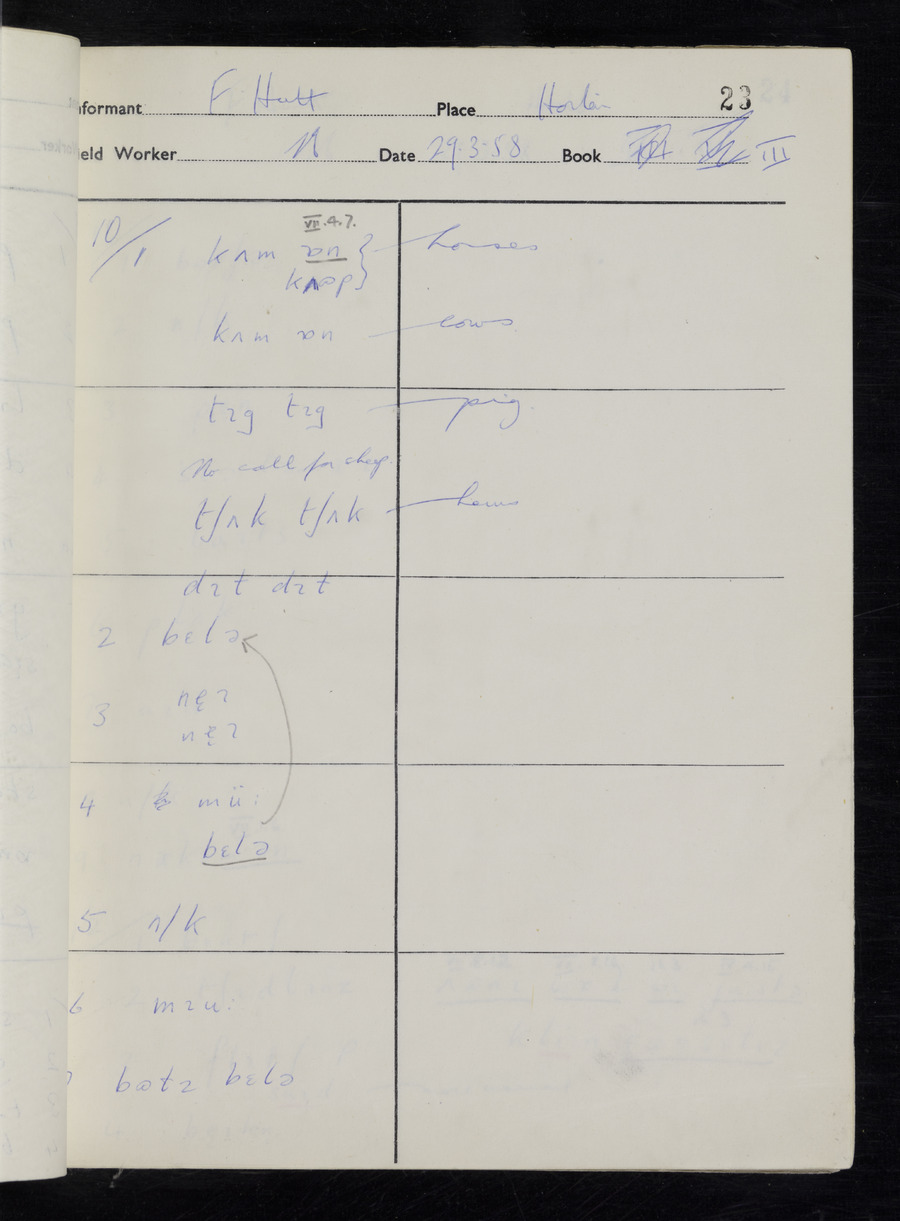 Informant F. Hutt Place 23
Field Worker Date 29.3.58 Book III
10/1 VII.4.7.
kʌm ɒn } horses
kʌp
kʌm ɒn cows
tɪg tɪg pig.
No call for sheep.
tʃʌk tʃʌk hens
dɪt dɪt
2 bɛlə
3 nɛ̨ɪ
nɛ̨ɪ
4 mü:
bɛlə
5 n/k
6 mɪu:
bɛlə